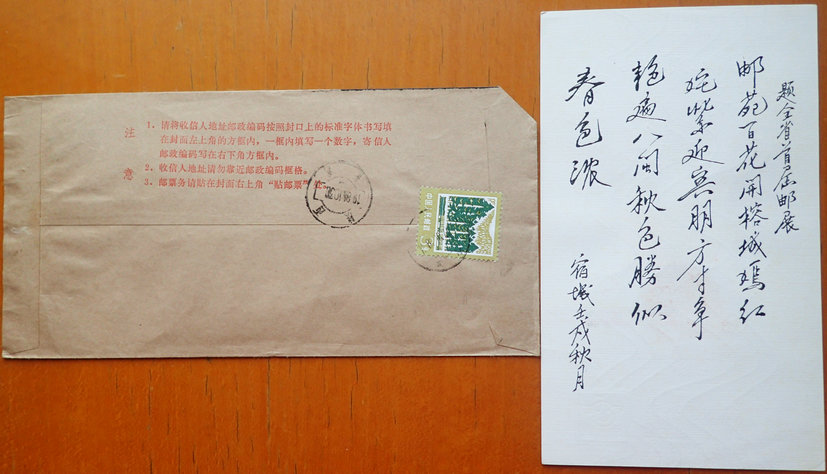 注意
1、请将收信人地址邮政编码按照封口上的标准字体书写填
在封面左上角的方框内，一框内填写一个数字，寄信人
邮政编码写在右下角方框内。
2、收信人地址请勿靠近邮政编码框格。
3、邮票务请贴在封面右上角“贴邮票”
题全省首届邮展
邮苑百花开榕城嫣红
姹紫迎宾朋方寸争
艳遍八闽秋色勝似
春色浓
宿城壬戌秋月